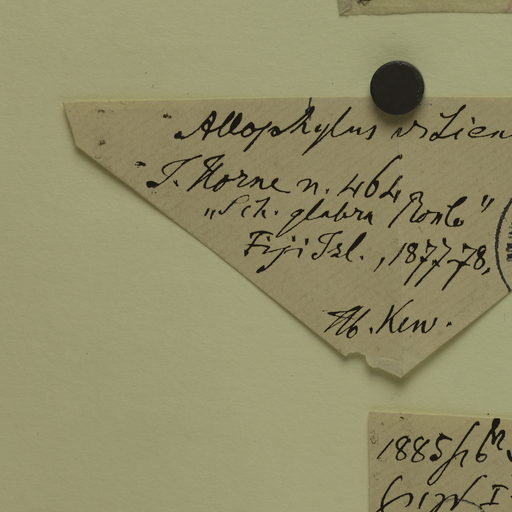 Allophylus vitien
J. Horne n. 464
"Sch. glabra Roxb"
Fiji Isl., 1877-78.
Hb. Kew.
1885